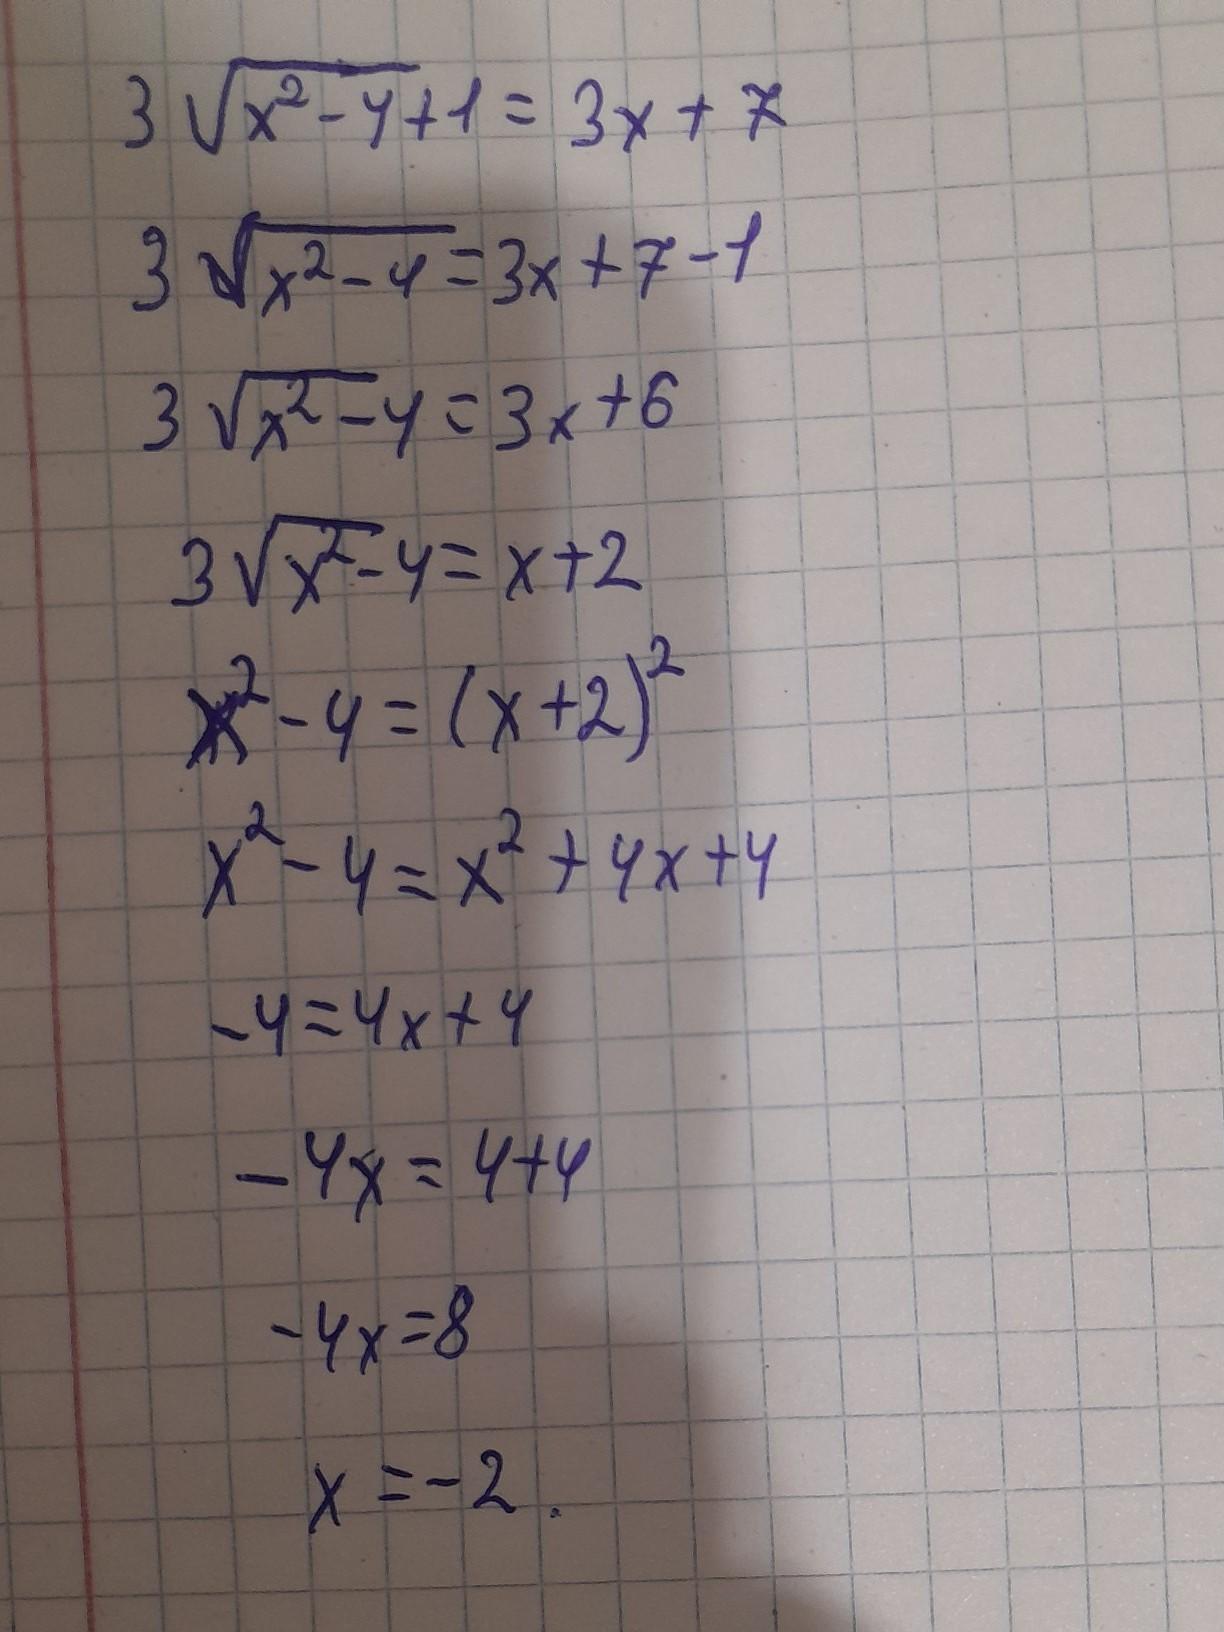 3 √(x² - 4) + 1 = 3x + 7
3 √(x² - 4) = 3x + 7 - 1
3 √(x² - 4) = 3x + 6
3 √(x² - 4) = x + 2
x² - 4 = (x + 2)²
x² - 4 = x² + 4x + 4
-4 = 4x + 4
-4x = 4 + 4
-4x = 8
x = -2.